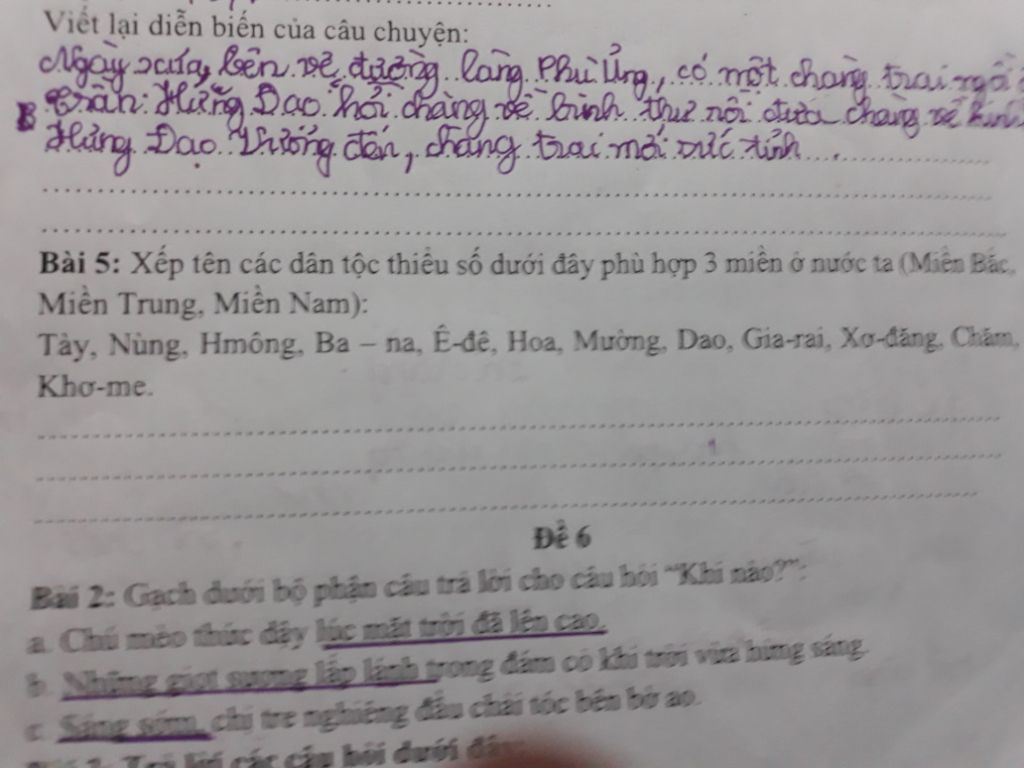 Viết lại diễn biến của câu chuyện:
Ngày xưa, bên vệ đường làng Phù Ủng, có một chàng trai ngồi
Trần Hưng Đạo hỏi chàng về binh thư rồi đưa chàng về kinh
Hưng Đạo Vương đến, chàng trai mới sực tỉnh
Bài 5: Xếp tên các dân tộc thiểu số dưới đây phù hợp 3 miền ở nước ta (Miền Bắc,
Miền Trung, Miền Nam):
Tày, Nùng, Hmông, Ba – na, Ê-đê, Hoa, Mường, Dao, Gia-rai, Xơ-đăng, Chăm,
Khơ-me.
Đề 6
Bài 2: Gạch dưới bộ phận câu trả lời cho câu hỏi "Khi nào?":
a. Chú mèo thức dậy lúc mặt trời đã lên cao.
b. Những giọt sương lấp lánh trong đám cỏ khi trời vừa hửng sáng.
c. Sáng sớm, chị tre nghiêng đầu chải tóc bên bờ ao.
Trả lời các câu hỏi dưới đây: